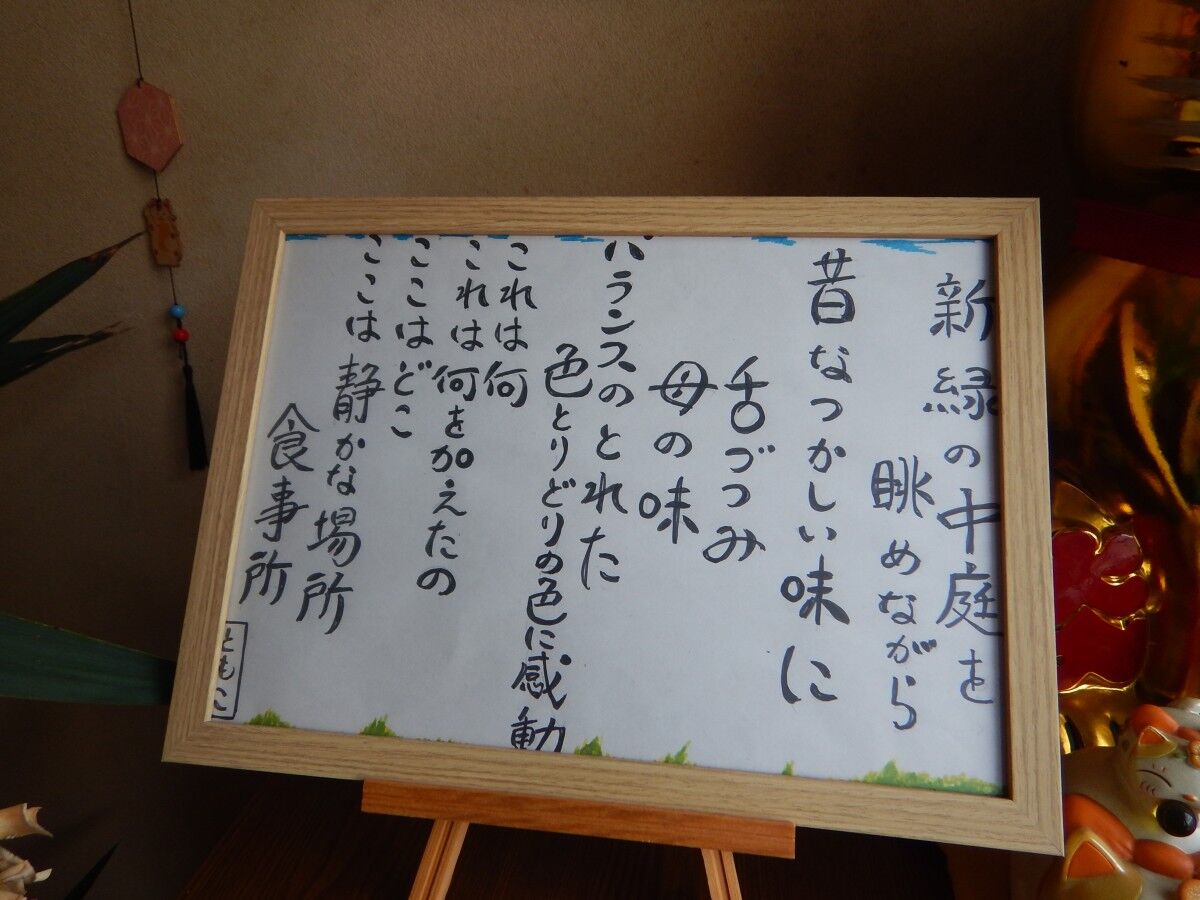 新緑の中庭を
眺めながら
昔なつかしい味に
舌づつみ
母の味
バランスのとれた
色とりどりの色に感動
これは何
これは何を加えたの
ここはどこ
ここは静かな場所
食事所
ともこ